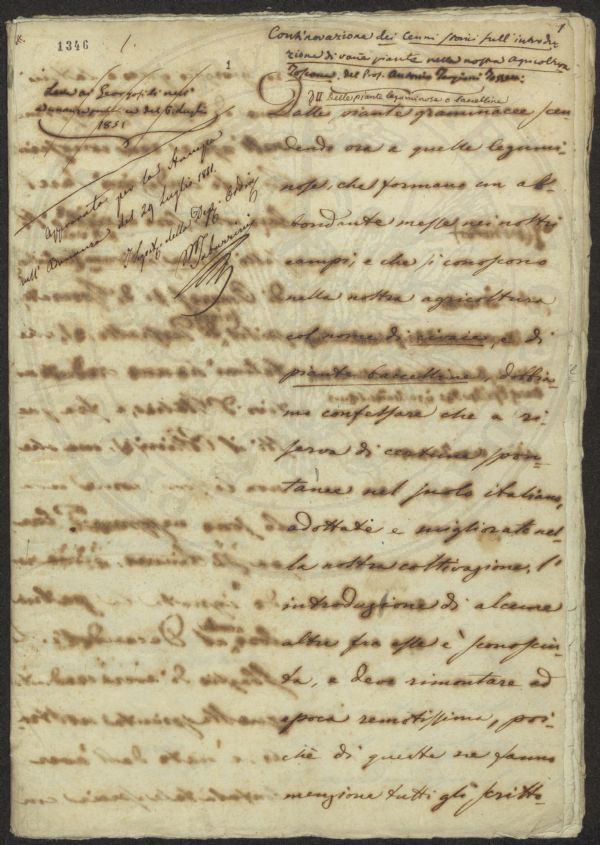 1346
1
1
Continovazione dei Cenni storici sull'introdu-
zione di varie piante nella nostra Agricoltura
Toscana, del Prof. Antonio Targioni Tozzetti
§ II Delle piante leguminose o baccelline
Letta ai Georgofili nell'
adunanza pubblica del 6 Luglio
1851
Approvata per la Stampa
nell' Adunanza del 29 Luglio 1851.
Dalle piante graminacee scen
dendo ora a quelle legumi-
nose, che formano un ab-
bondante messe nei nostri
campi, e che si conoscono
nella nostra agricoltura
col nome di civaie, e di
piante baccelline, dobbia-
mo confessare che a ri-
serva di contune spon-
tanee nel suolo italiano,
adottate e migliorate nel-
la nostra coltivazione, l'
introduzione di alcune
altre fra esse è sconosciu-
ta, e deve rimontare ad
epoca remotissima, poi-
chè di queste ne fanno
menzione tutti gli scritto-